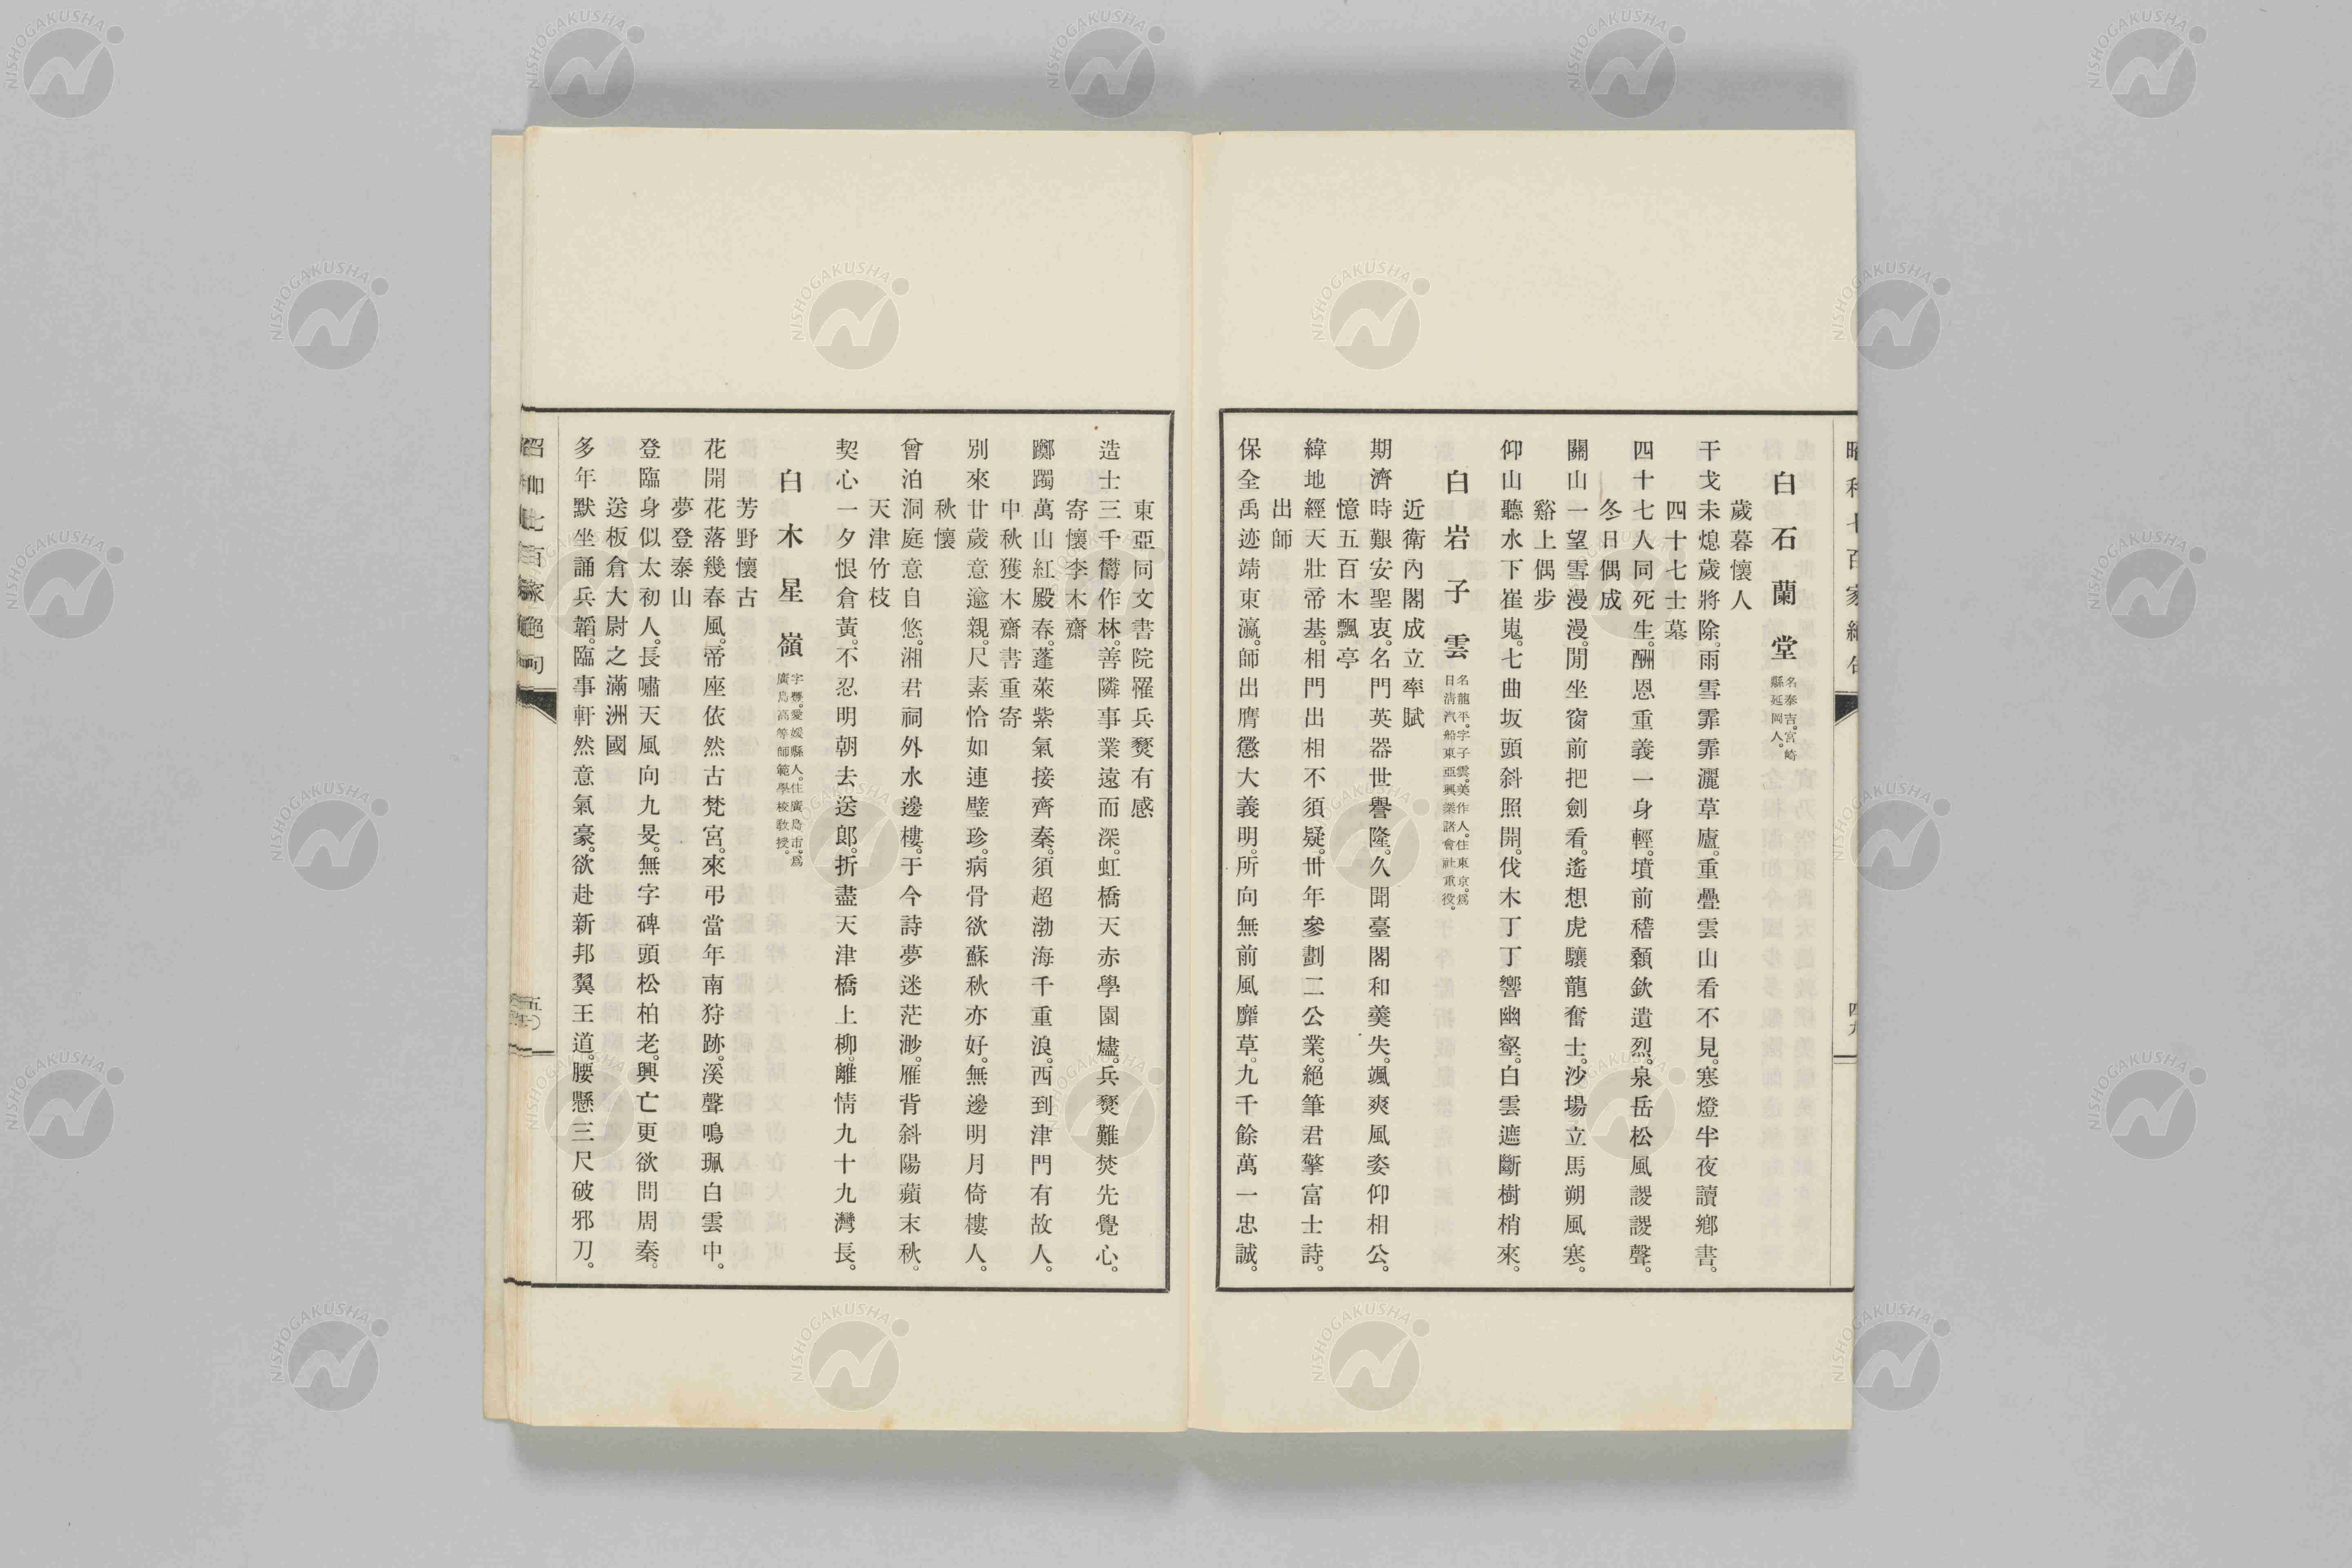 白石蘭堂 名泰吉。宮崎縣延岡人。
歲暮懷人
干戈未熄歲將除。雨雪霏霏灑草廬。重疊雲山看不見。寒燈半夜讀鄕書。
四十七士墓
四十七人同死生。酬恩重義一身輕。墳前稽顙欽遺烈。泉岳松風謖謖聲。
冬日偶成
關山一望雪漫漫。閒坐窗前把劍看。遙想虎驤龍奮士。沙場立馬朔風寒。
谿上偶步
仰山聽水下崔嵬。七曲坂頭斜照開。伐木丁丁響幽壑。白雲遮斷樹梢來。
白岩子雲 名龍平。字子雲。美作人。住東京。爲日淸汽船東亞興業諸會社重役。
近衛內閣成立率賦
期濟時艱安聖衷。名門英器世譽隆。久聞臺閣和羹失。颯爽風姿仰相公。
憶五百木飄亭
緯地經天壯帝基。相門出相不須疑。卅年參劃二公業。絕筆君擎富士詩。
出師
保全禹迹靖東瀛。師出膺懲大義明。所向無前風靡草。九千餘萬一忠誠。
昭和七百家絕句
四九
東亞同文書院罹兵燹有感
造士三千欝作林。善隣事業遠而深。虹橋天赤學園燼。兵燹難焚先覺心。
寄懷李木齋
躑躅萬山紅殿春。蓬萊紫氣接齊秦。須超渤海千重浪。西到津門有故人。
中秋獲木齋書重寄
別來廿歲意逾親。尺素恰如連璧珍。病骨欲蘇秋亦好。無邊明月倚樓人。
秋懷
曾泊洞庭意自悠。湘君祠外水邊樓。于今詩夢迷茫渺。雁背斜陽蘋末秋。
天津竹枝
契心一夕恨倉黃。不忍明朝去送郎。折盡天津橋上柳。離情九十九灣長。
白木星嶺 字豐。愛媛縣人。住廣島市。爲廣島高等師範學校敎授。
芳野懷古
花開花落幾春風。帝座依然古梵宮。來弔當年南狩跡。溪聲鳴珮白雲中。
夢登泰山
登臨身似太初人。長嘯天風向九旻。無字碑頭松柏老。興亡更欲問周秦。
送板倉大尉之滿洲國
多年默坐誦兵韜。臨事軒然意氣豪。欲赴新邦翼王道。腰懸三尺破邪刀。
昭和七百家絕句
五〇
NISHOGAKUSHA